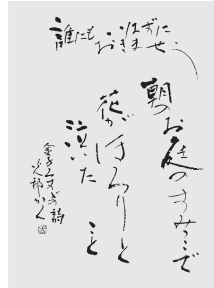 誰にもいはずに
おきませう
朝のお庭のすみっこで
花がほろりと
泣いた
こと
金子みすゞの詩
かく